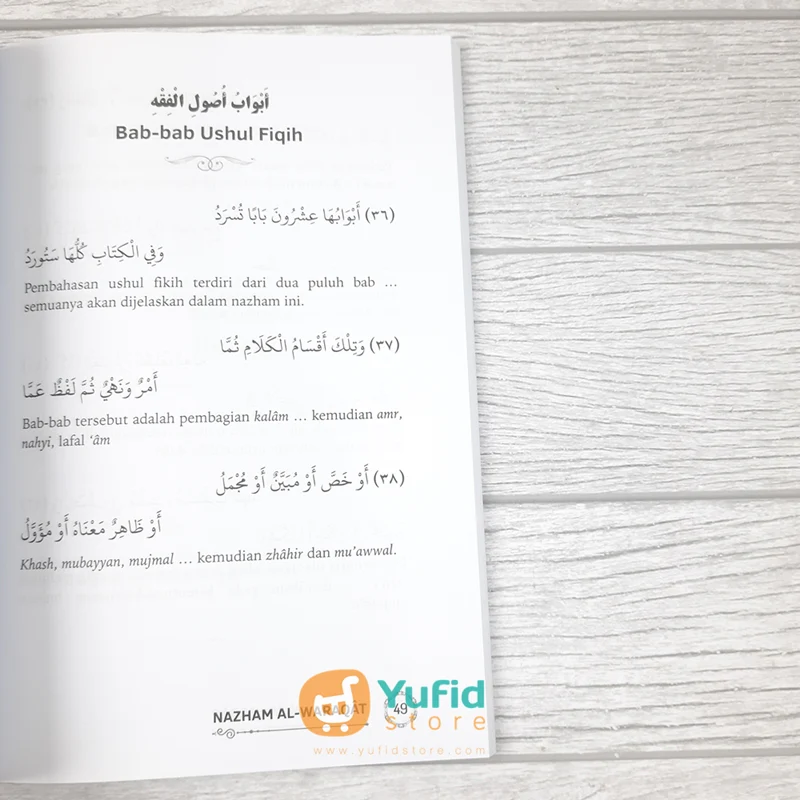 أَبْوَابُ أُصُولِ الْفِقْهِ
Bab-bab Ushul Fiqih
(٣٦) أَبْوَابُهَا عِشْرُونَ بَابًا تُسْرَدُ
وَفِي الْكِتَابِ كُلُّهَا سَتُورَدُ
Pembahasan ushul fikih terdiri dari dua puluh bab ...
semuanya akan dijelaskan dalam nazham ini.
(٣٧) وَتِلْكَ أَقْسَامُ الْكَلَامِ ثُمَّا
أَمْرٌ وَنَهْيٌ ثُمَّ لَفْظٌ عَمَّا
Bab-bab tersebut adalah pembagian kalâm ... kemudian amr,
nahyi, lafal ‘âm
(٣٨) أَوْ خَصَّ أَوْ مُبَيَّنٌ أَوْ مُجْمَلُ
أَوْ ظَاهِرٌ مَعْنَاهُ أَوْ مُؤَوَّلُ
Khash, mubayyan, mujmal ... kemudian zhâhir dan mu’awwal.
NAZHAM AL-WARAQÂT 49
Yufid
store
www.yufidstore.com